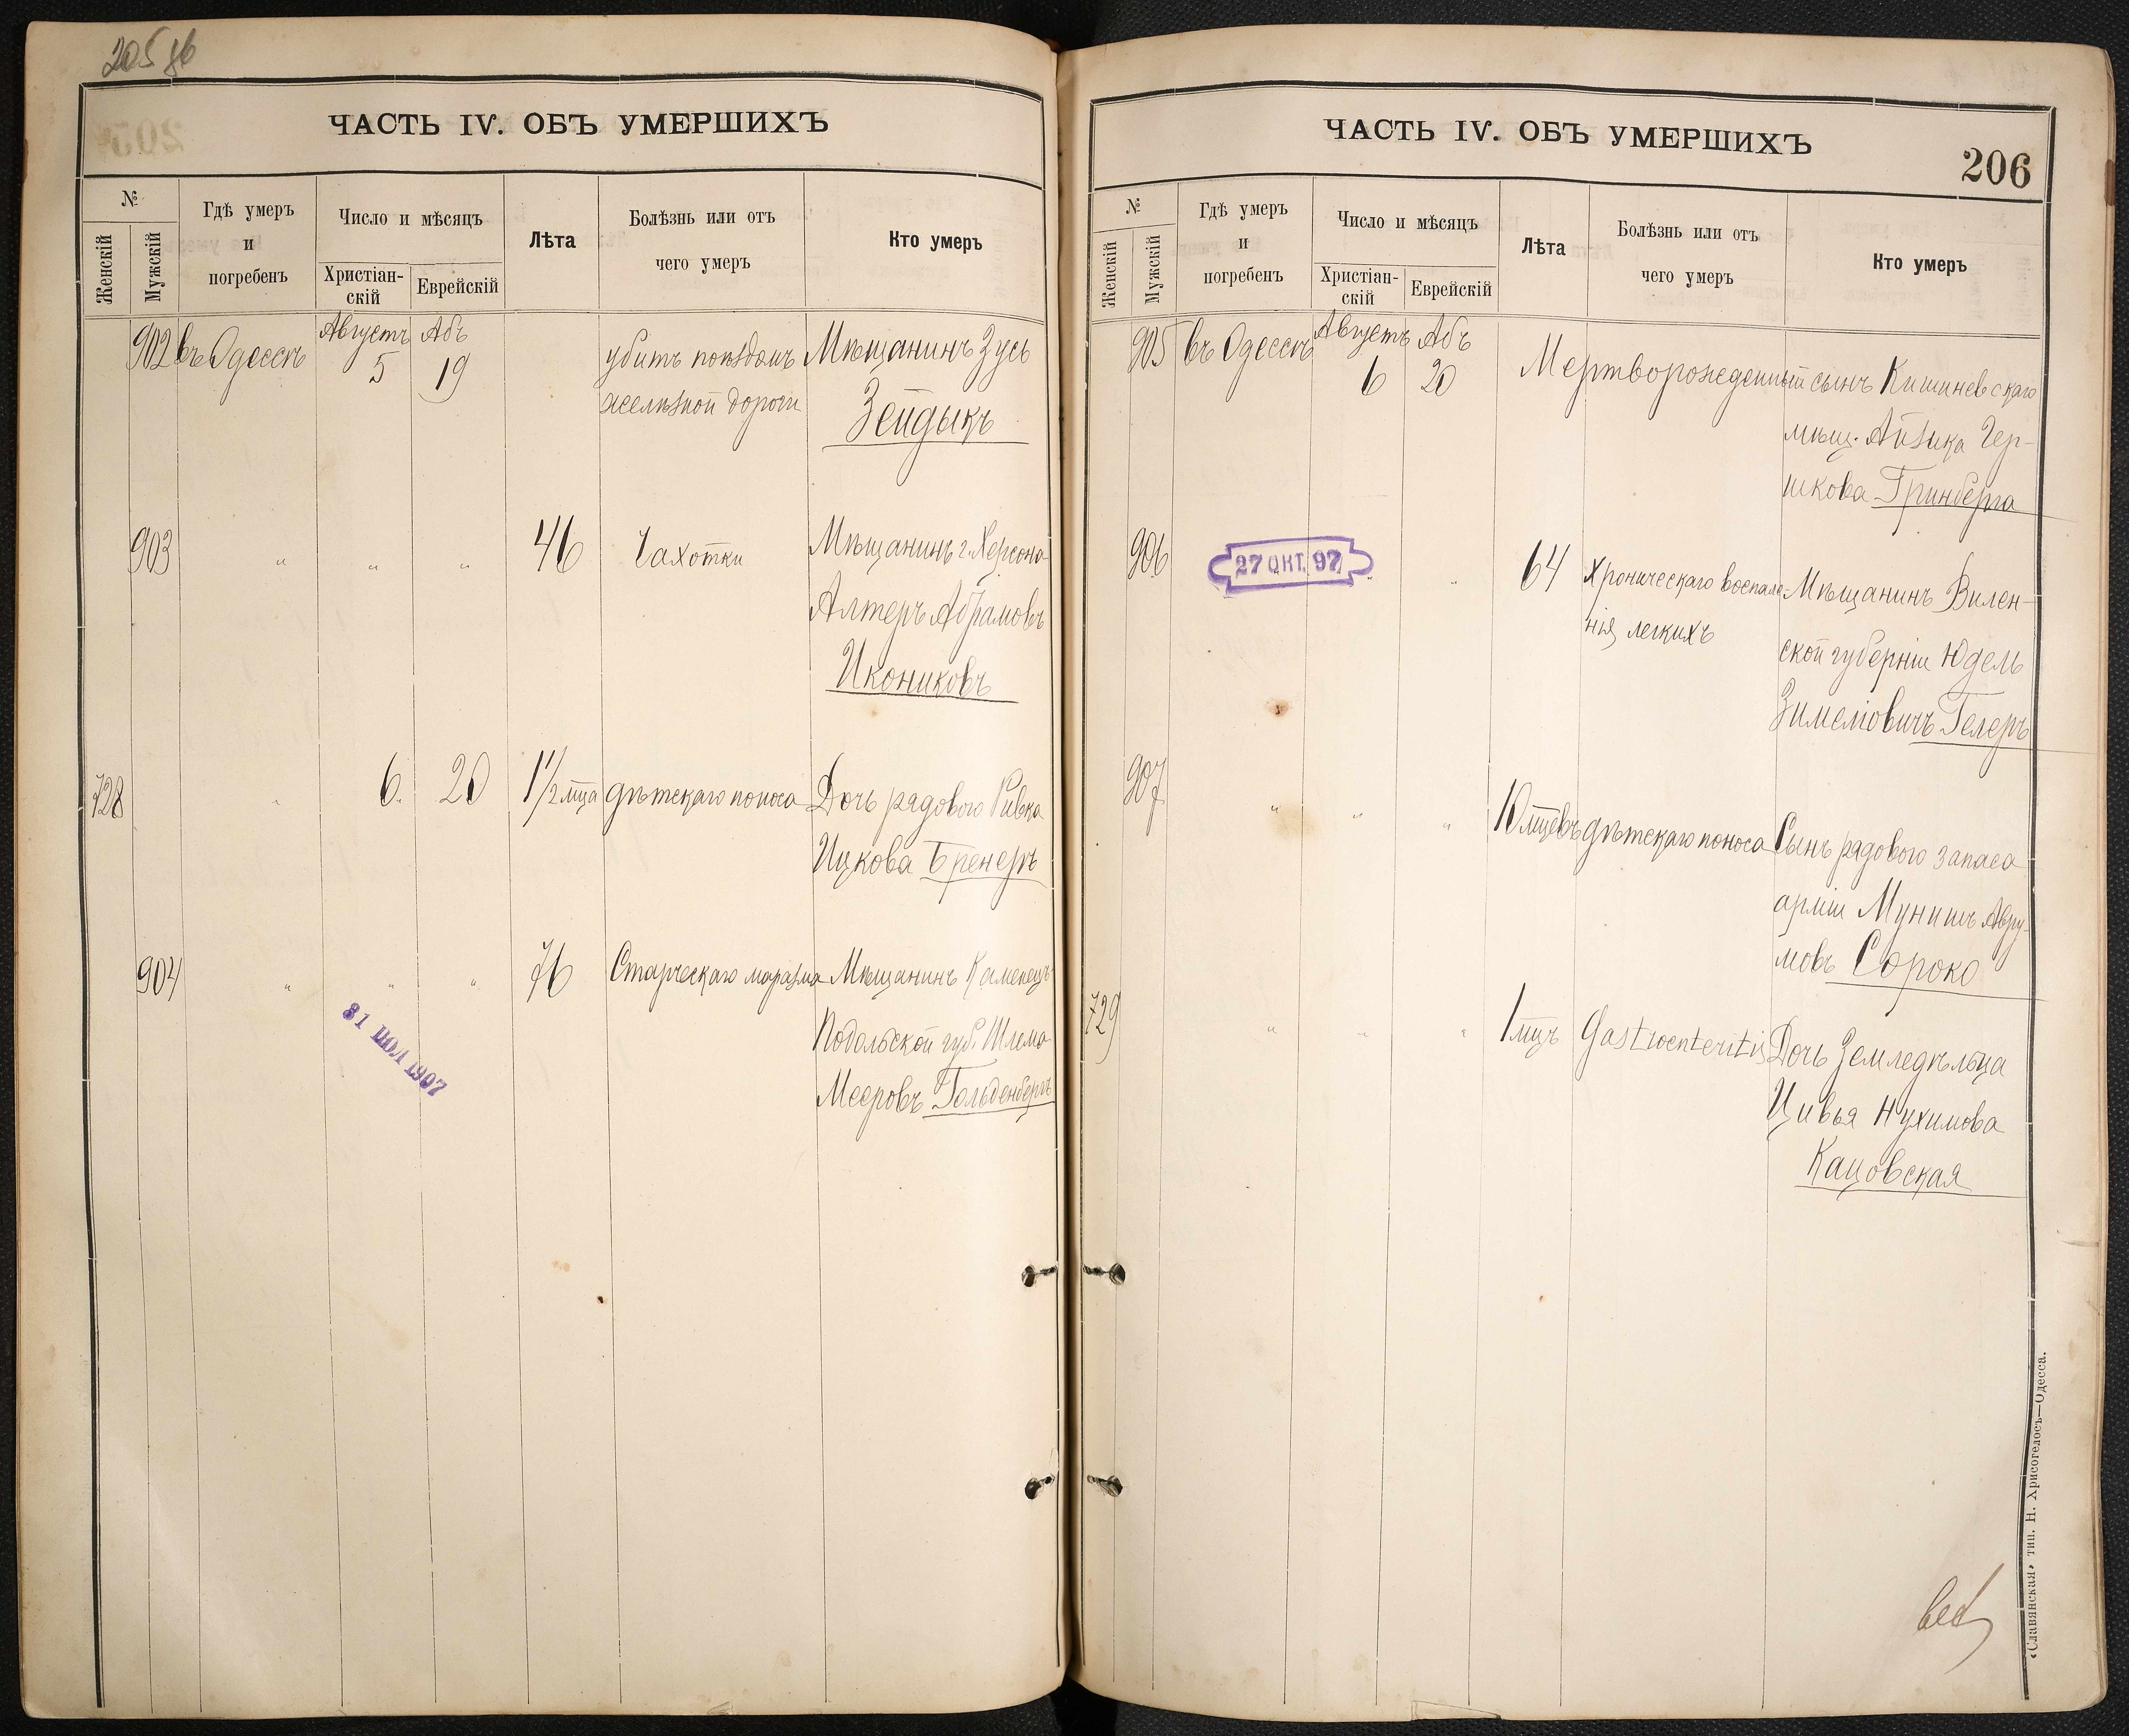 205 об
ЧАСТЬ IV. ОБЪ УМЕРШИХЪ
№
Женскій
Мужскій
Гдѣ умеръ
и
погребенъ
Число и мѣсяцъ
Христіан-
скій
Еврейскій
Лѣта
Болѣзнь или отъ
чего умеръ
Кто умеръ
902 въ Одессѣ Августъ 5 Абъ 19 убитъ поѣздомъ Мѣщанинъ Зусь
желѣзной дороги Зейдыкъ
903 " " " 46 Чахотки Мѣщанинъ г. Херсона
Алтеръ Абрамовъ
Икониковъ
728 " 6. 20 1 1/2 мца дѣтскаго поноса Дочь рядового Ривка
Ицкова Бренеръ
904 " " " 76 Старческаго маразма Мѣщанинъ Каменецъ
Подольской губ. Шлема
Мееровъ Гольденбергъ
31 ІЮЛ 1907
ЧАСТЬ IV. ОБЪ УМЕРШИХЪ
206
№
Женскій
Мужскій
Гдѣ умеръ
и
погребенъ
Число и мѣсяцъ
Христіан-
скій
Еврейскій
Лѣта
Болѣзнь или отъ
чего умеръ
Кто умеръ
905 въ Одессѣ Августъ 6 Абъ 20 Мертворожденный сынъ Кишиневскаго
мѣщ. Айзика Гер-
шкова Гринберга
906 27 ОКТ. 97 " " 64 Хроническаго воспале- Мѣщанинъ Вилен-
нія легкихъ ской губерніи Юдель
Зимелiовичъ Гелеръ
907 " " " 10 мцевъ дѣтскаго поноса Сынъ рядового запаса
арміи Мунишъ Авру-
мовъ Сороко
729 " " " 1 мцъ Gastroenteritis Дочь Земледѣльца
Цивья Нухимова
Кацовская
«Славянская» тип. Н. Хрисогелосъ—Одесса.